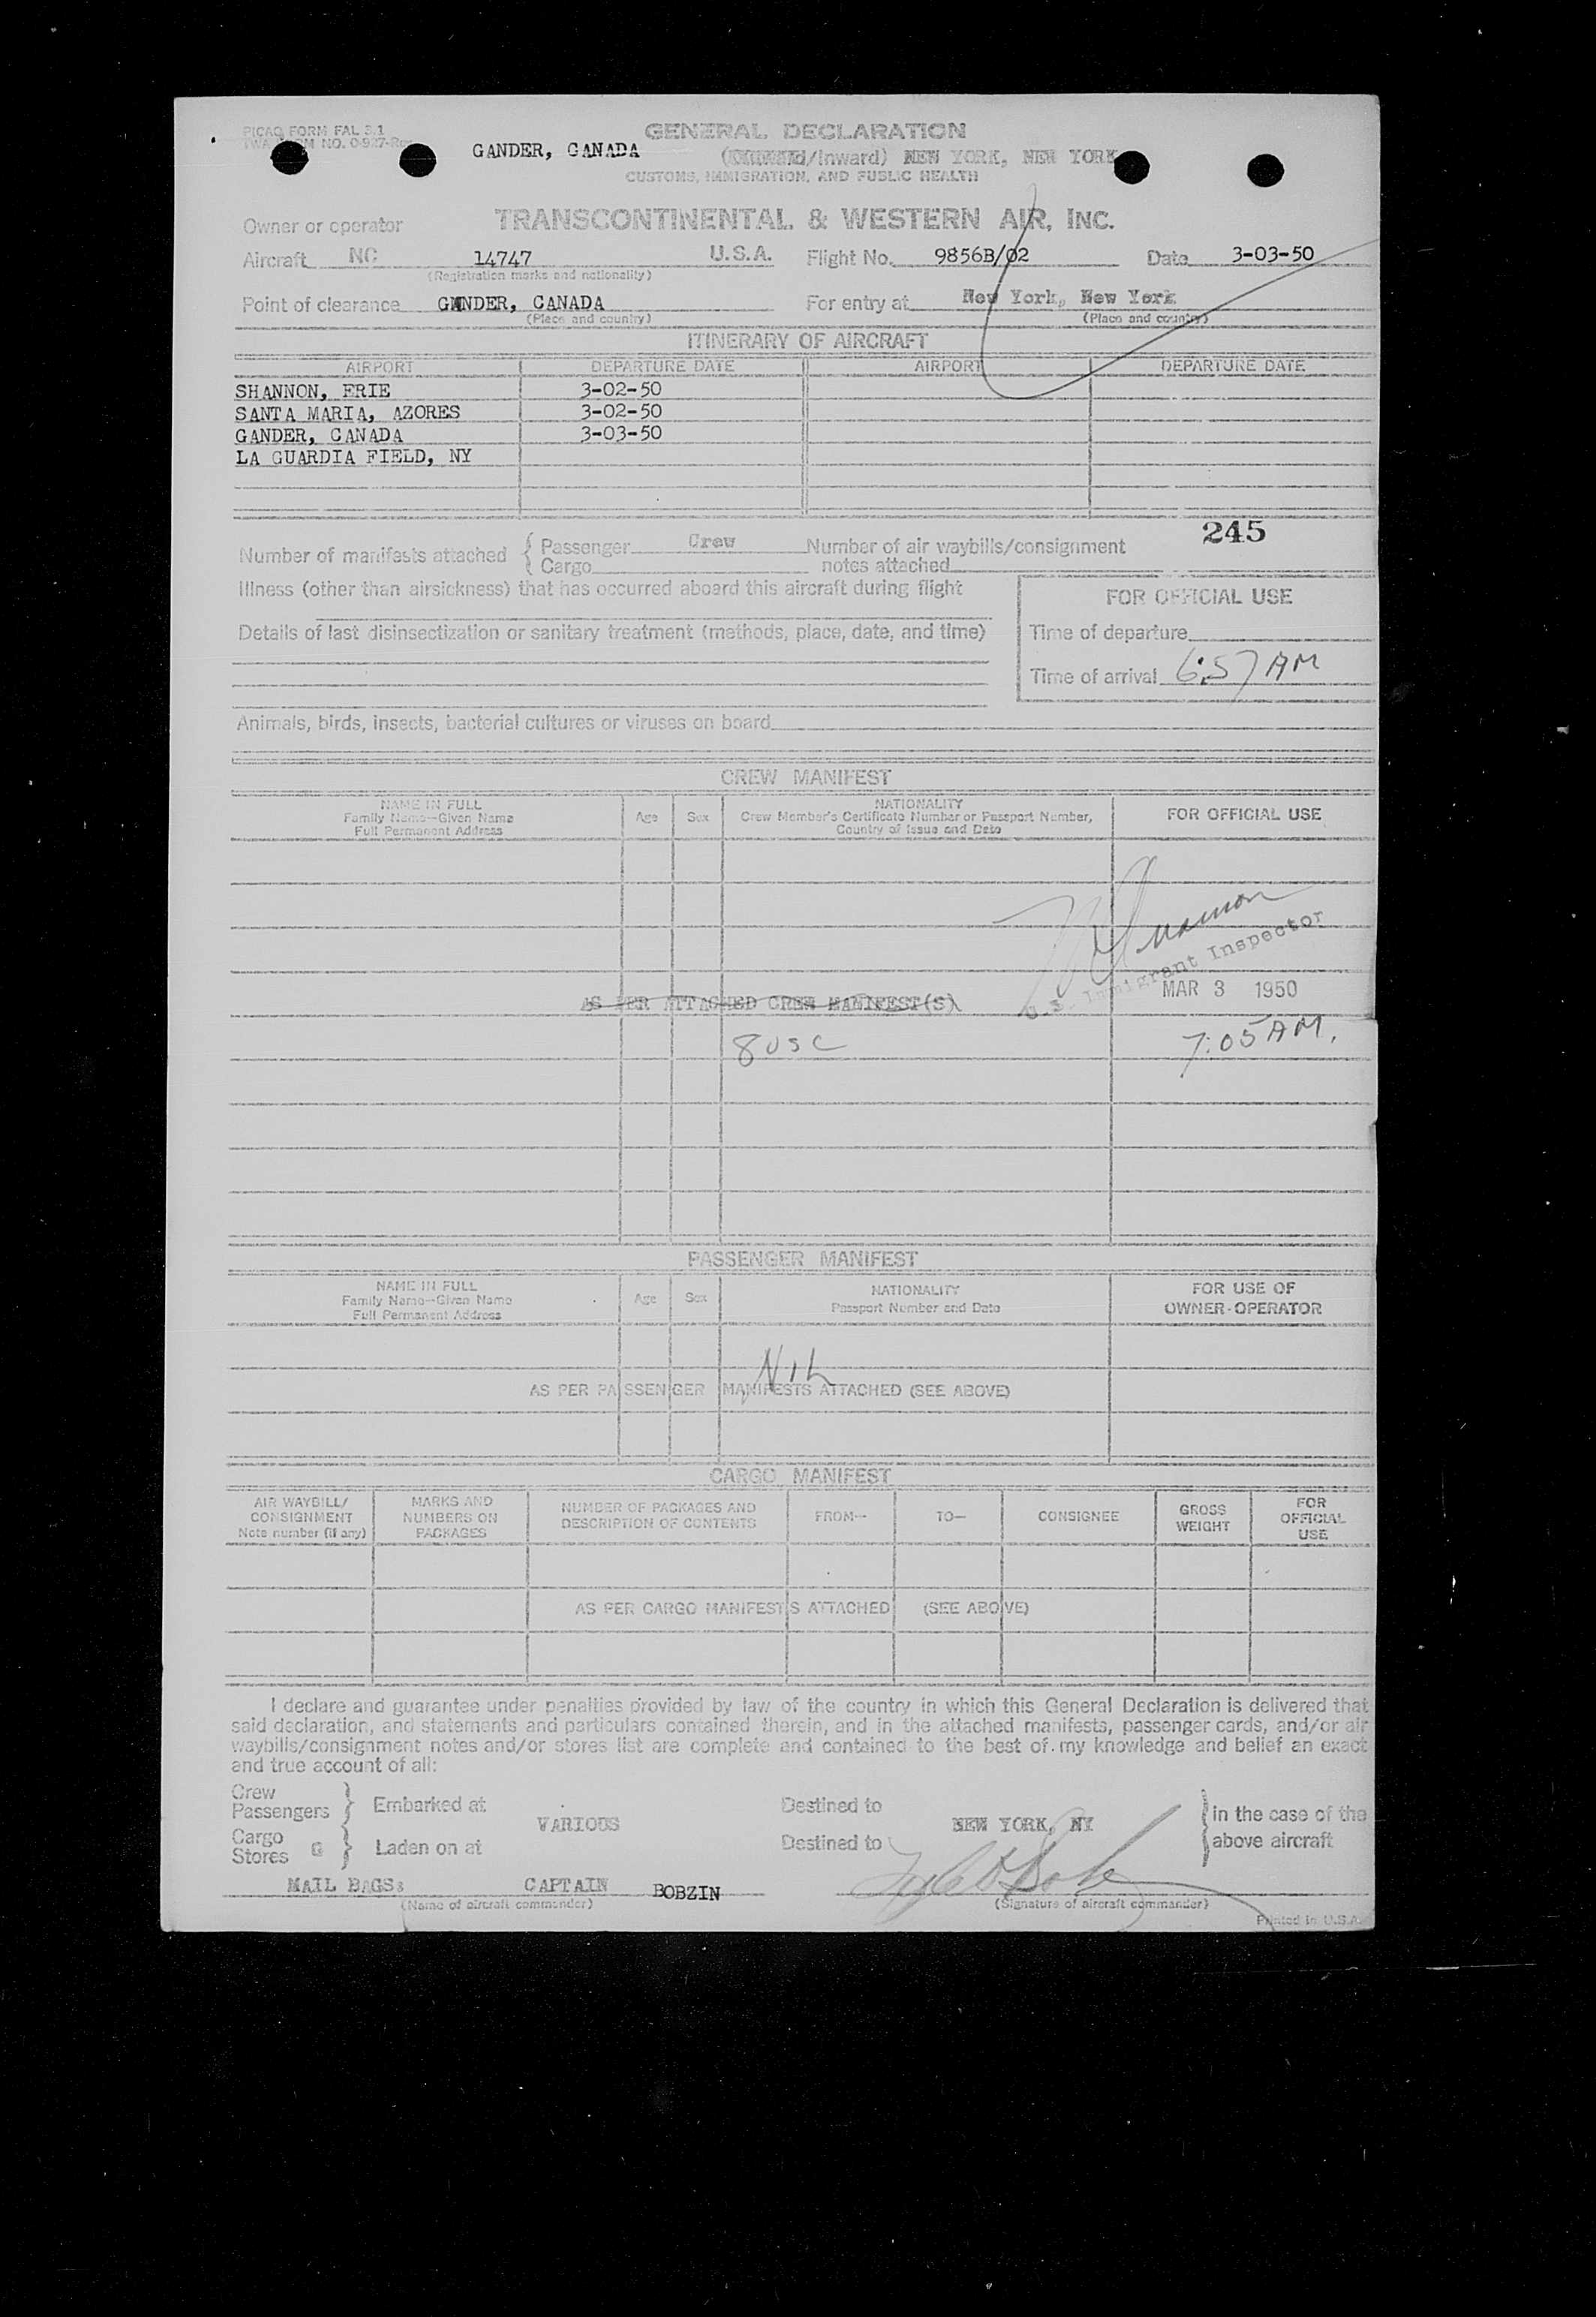 PICAO FORM FAL 3.1
TWA FORM NO. 0-927-Rev
GENERAL DECLARATION
GANDER, CANADA (Outward/Inward) NEW YORK, NEW YORK
CUSTOMS, IMMIGRATION, AND PUBLIC HEALTH
Owner or operator TRANSCONTINENTAL & WESTERN AIR, INC.
Aircraft NC 14747 U.S.A. Flight No. 9856B/02 Date 3-03-50
(Registration marks and nationality)
Point of clearance GANDER, CANADA For entry at New York, New York
(Place and country) (Place and country)
ITINERARY OF AIRCRAFT
AIRPORT DEPARTURE DATE AIRPORT DEPARTURE DATE
SHANNON, ERIE 3-02-50
SANTA MARIA, AZORES 3-02-50
GANDER, CANADA 3-03-50
LA GUARDIA FIELD, NY
245
Number of manifests attached { Passenger Crew Number of air waybills/consignment
{ Cargo notes attached
Illness (other than airsickness) that has occurred aboard this aircraft during flight
FOR OFFICIAL USE
Details of last disinsectization or sanitary treatment (methods, place, date, and time)
Time of departure
Time of arrival 6:57 AM
Animals, birds, insects, bacterial cultures or viruses on board
CREW MANIFEST
NAME IN FULL
Family Name—Given Name
Full Permanent Address
Age Sex
NATIONALITY
Crew Member's Certificate Number or Passport Number,
Country of Issue and Date
FOR OFFICIAL USE
U.S. Immigrant Inspector
MAR 3 1950
AS PER ATTACHED CREW MANIFEST(S)
8 USC 7:05 AM.
PASSENGER MANIFEST
NAME IN FULL
Family Name—Given Name
Full Permanent Address
Age Sex
NATIONALITY
Passport Number and Date
FOR USE OF
OWNER-OPERATOR
NIL
AS PER PASSENGER MANIFESTS ATTACHED (SEE ABOVE)
CARGO MANIFEST
AIR WAYBILL/
CONSIGNMENT
Note number (if any)
MARKS AND
NUMBERS ON
PACKAGES
NUMBER OF PACKAGES AND
DESCRIPTION OF CONTENTS
FROM—
TO—
CONSIGNEE
GROSS
WEIGHT
FOR
OFFICIAL
USE
AS PER CARGO MANIFESTS ATTACHED (SEE ABOVE)
I declare and guarantee under penalties provided by law of the country in which this General Declaration is delivered that
said declaration, and statements and particulars contained therein, and in the attached manifests, passenger cards, and/or air
waybills/consignment notes and/or stores list are complete and contained to the best of my knowledge and belief an exact
and true account of all:
Crew
Passengers } Embarked at Destined to } in the case of the
VARIOUS NEW YORK, NY
Cargo
Stores G } Laden on at Destined to } above aircraft
MAIL BAGS: CAPTAIN BOBZIN
(Name of aircraft commander) (Signature of aircraft commander)
Printed in U.S.A.